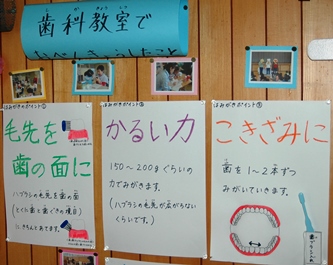 歯科教室で
べんきょうしたこと
はみがきポイント①
毛先を
歯の面に
ハブラシの毛先を歯の面
(とくに歯と歯ぐきの境目)
に、きちんとあてます。
はみがきポイント②
かるい力
150〜200gぐらいの
力でみがきます。
(ハブラシの毛先が広がらない
くらいです。)
はみがきポイント③
こきざみに
歯を1〜2本ずつ
みがいていきます。